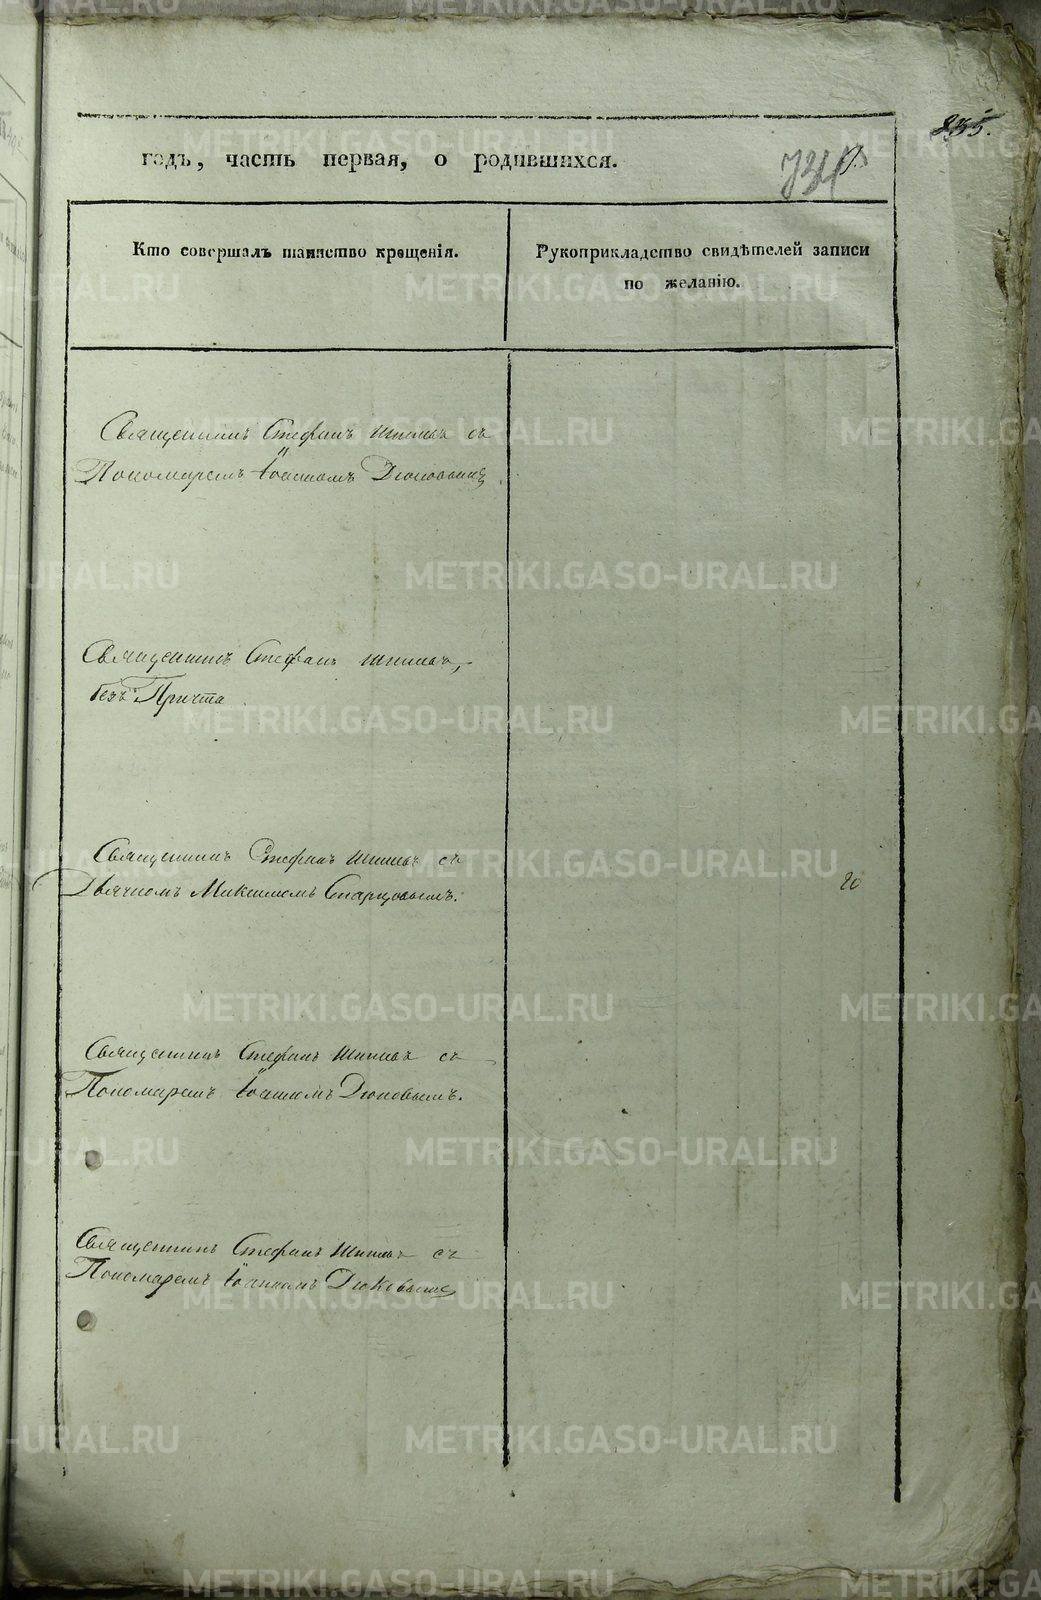 835.
734
годъ, часть первая, о родившихся.
Кто совершалъ таинство крещенія.
Рукоприкладство свидѣтелей записи
по желанію.
Священникъ Стефанъ съ
Пономаремъ Іоанномъ Дюковымъ
Священникъ Стефанъ
безъ Причта
Священникъ Стефанъ съ
Дьячкомъ Максимомъ Старцовымъ.
20
Священникъ Стефанъ съ
Пономаремъ Іоанномъ Дюковымъ.
Священникъ Стефанъ съ
Пономаремъ Іоанномъ Дюковымъ
METRIKI.GASO-URAL.RU